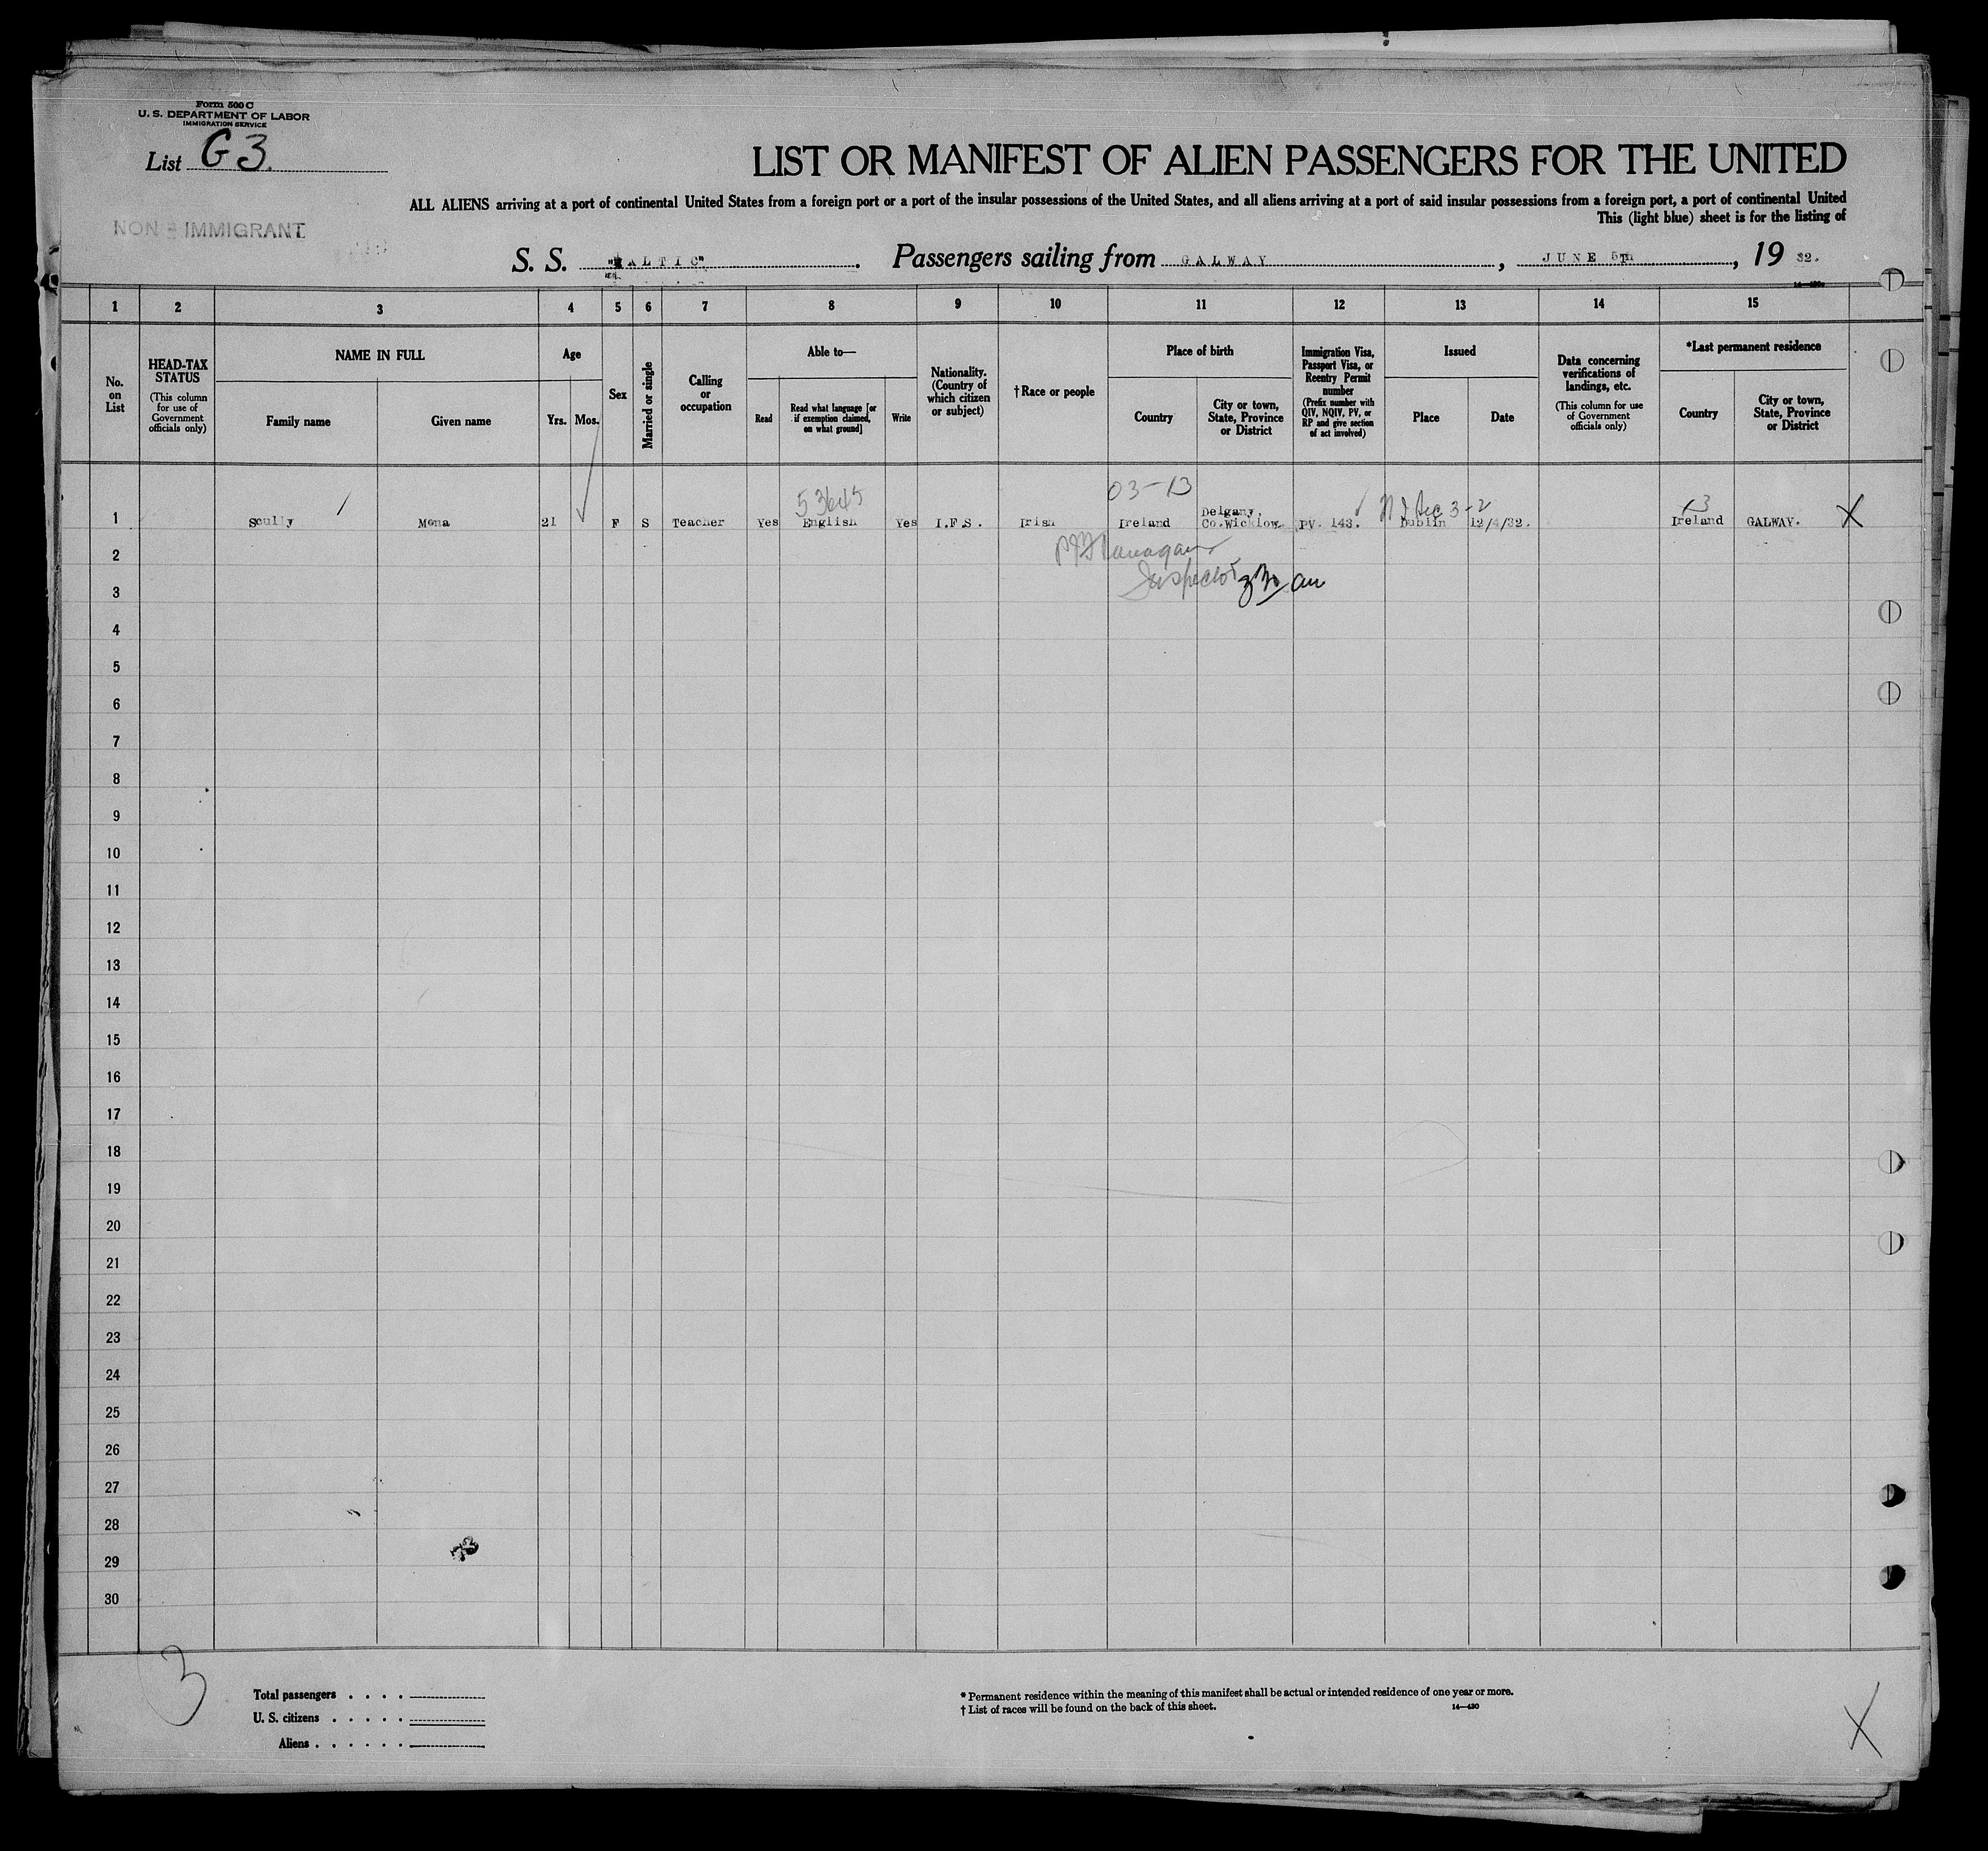 Form 500 C
U. S. DEPARTMENT OF LABOR
IMMIGRATION SERVICE
List G 3.
LIST OR MANIFEST OF ALIEN PASSENGERS FOR THE UNITED
ALL ALIENS arriving at a port of continental United States from a foreign port or a port of the insular possessions of the United States, and all aliens arriving at a port of said insular possessions from a foreign port, a port of continental United
This (light blue) sheet is for the listing of
NON - IMMIGRANT
S. S. "BALTIC". Passengers sailing from GALWAY, JUNE 5TH, 19 32.
1 2 3 4 5 6 7 8 9 10 11 12 13 14 15
No. on List
HEAD-TAX STATUS
(This column for use of Government officials only)
NAME IN FULL
Family name
Given name
Age
Yrs.
Mos.
Sex
Married or single
Calling or occupation
Able to—
Read
Read what language [or if exemption claimed, on what ground]
Write
Nationality. (Country of which citizen or subject)
† Race or people
Place of birth
Country
City or town, State, Province or District
Immigration Visa, Passport Visa, or Reentry Permit number
(Prefix number with QIV, NQIV, PV, or RP and give section of act involved)
Issued
Place
Date
Data concerning verifications of landings, etc.
(This column for use of Government officials only)
*Last permanent residence
Country
City or town, State, Province or District
53645
03-13
3-2
13
1 Scully Mona 21 F S Teacher Yes English Yes I.F.S. Irish Ireland Delgany, Co. Wicklow. PV. 143. Dublin 12/4/32. Ireland GALWAY. X
2
Inspector
3
4
5
6
7
8
9
10
11
12
13
14
15
16
17
18
19
20
21
22
23
24
25
26
27
28
29
30
3
Total passengers . . . .
U. S. citizens . . . . .
Aliens . . . . . .
* Permanent residence within the meaning of this manifest shall be actual or intended residence of one year or more.
† List of races will be found on the back of this sheet.
14—430
X